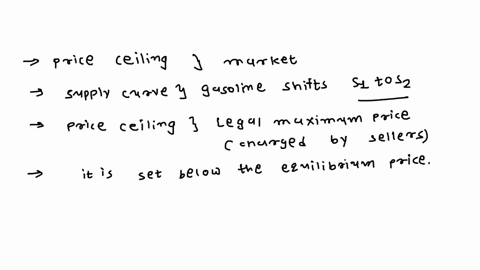 → price ceiling } market
→ supply curve } gasoline shifts S1 to S2
→ price ceiling } Legal maximum price
(charged by sellers)
→ it is set below the equilibrium price.